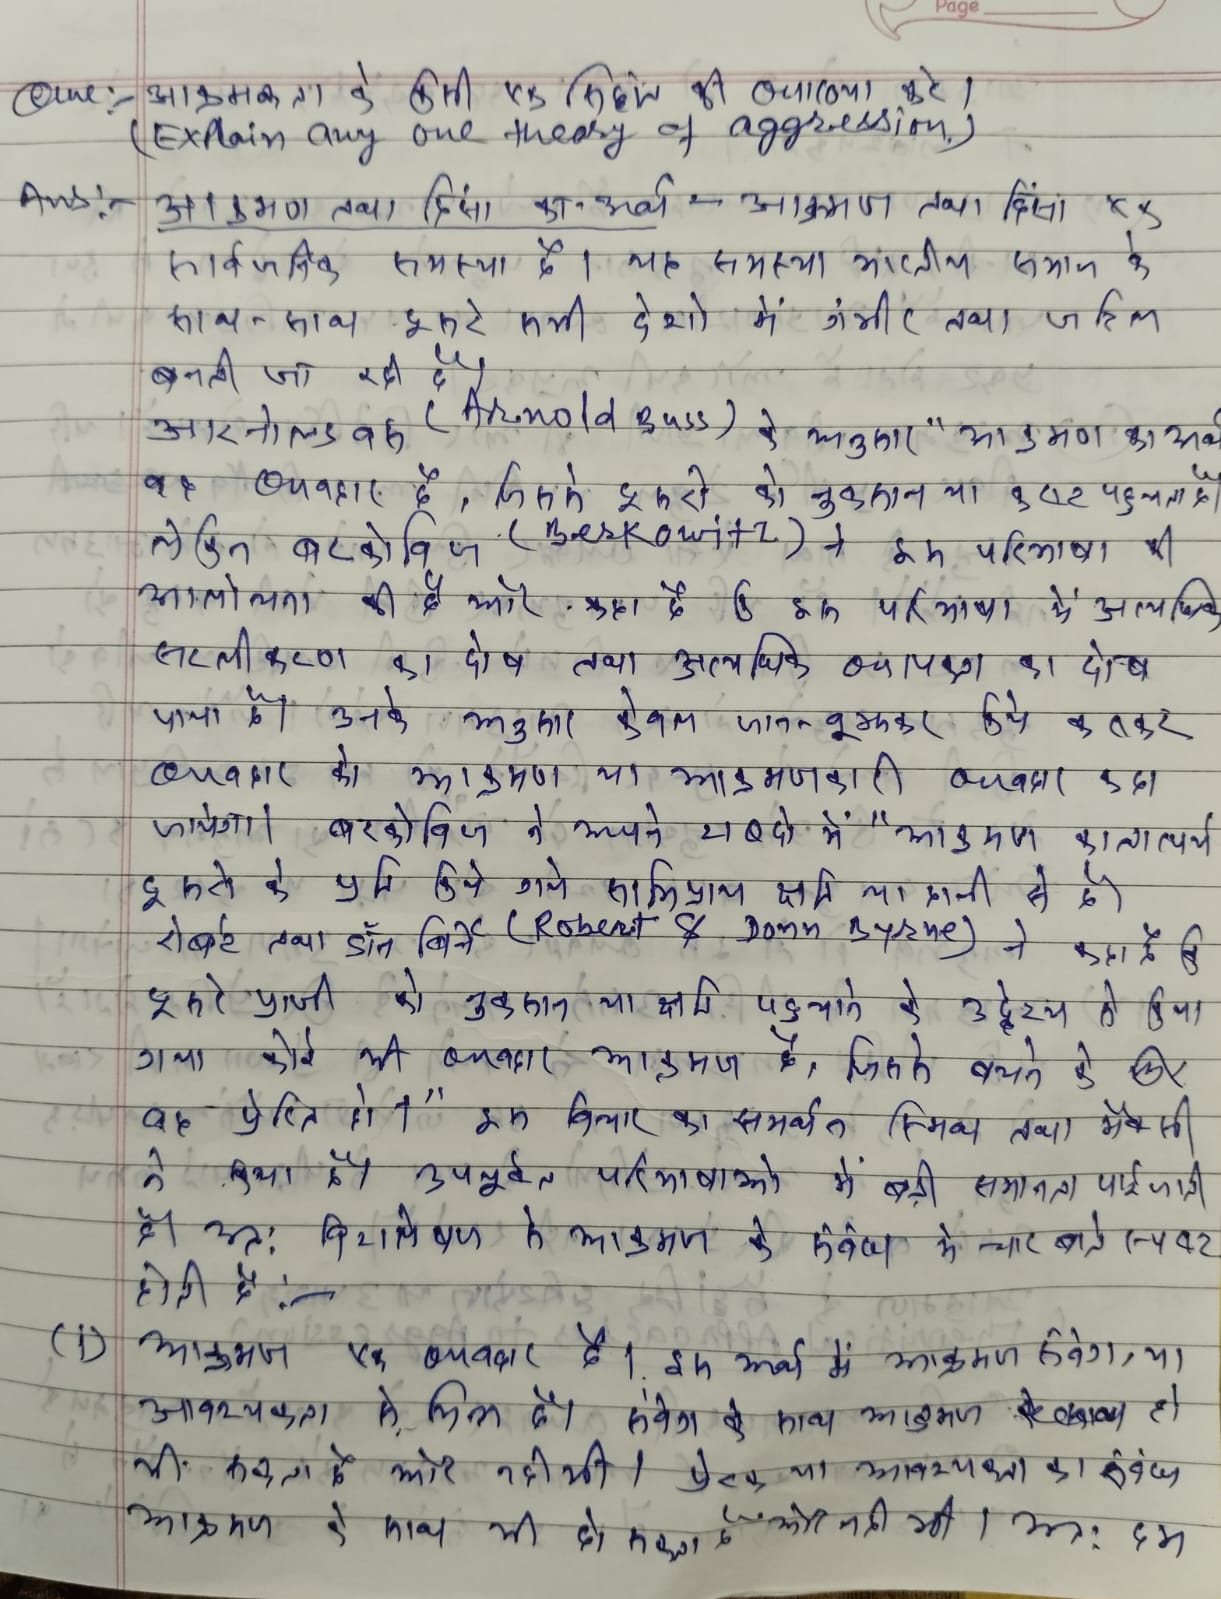 Page
Que:- आक्रमकता के किसी एक सिद्धांत की व्याख्या करे।
(Explain any one theory of aggression.)
Ans:- आक्रमण तथा हिंसा का अर्थ - आक्रमण तथा हिंसा एक
सार्वजनिक समस्या है। यह समस्या भारतीय समाज के
साथ-साथ दूसरे सभी देशो में गंभीर तथा जटिल
बनती जा रही है।
आरनोल्ड बस (Arnold Buss) के अनुसार "आक्रमण का अर्थ
वह व्यवहार है, जिससे दूसरो को नुकसान या कष्ट पहुचता है।
लेकिन बरकोविज (Berkowitz) ने इस परिभाषा की
आलोचना की है और कहा है कि इस परिभाषा में अत्यधिक
सरलीकरण का दोष तथा अत्यधिक व्यापकता का दोष
पाया है। उनके अनुसार केवल जान-बूझकर किये कष्टकर
व्यवहार को आक्रमण या आक्रमणकारी व्यवहार कहा
जायेगा। बरकोविज ने अपने शब्दो में "आक्रमण का तात्पर्य
दूसरो के प्रति किये गये साभिप्राय क्षति या हानी से है।
रोबर्ट तथा डॉन बिर्ने (Robert & Donn Byrne) ने कहा है कि
दूसरे प्राणी को नुकसान या क्षति पहुचाने के उद्देश्य से किया
गया कोई भी व्यवहार आक्रमण है, जिससे बचने के लिए
वह प्रेरित हो।" इस विचार का समर्थन स्मिथ तथा मैक्सी
ने किया है। उपर्युक्त परिभाषाओ में बड़ी समानता पाई जाती
है। अतः विश्लेषण से आक्रमण के संबंध में चार बाते स्पष्ट
होती है :-
(i) आक्रमण एक व्यवहार है। इस अर्थ में आक्रमण संवेग, या
आवश्यकता से भिन्न है। संवेग के साथ आक्रमण हो
भी सकता है और नही भी। प्रेरक या आवश्यकता का संबंध
आक्रमण के साथ भी हो सकता है और नही भी। अतः हम